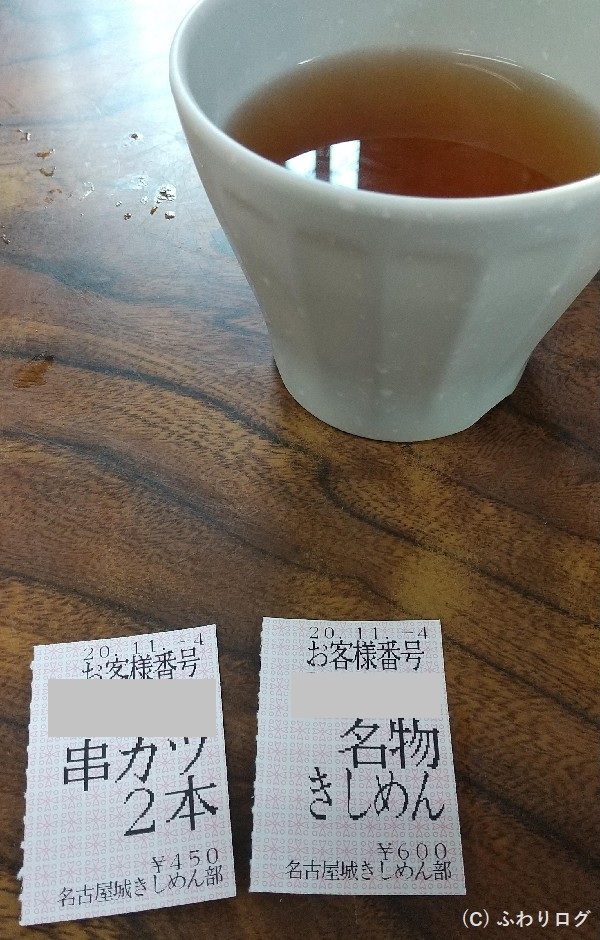 20.11.-4
お客様番号
串カツ
2本
¥450
名古屋城きしめん部
20.11.-4
お客様番号
名物
きしめん
¥600
名古屋城きしめん部
(C) ふわりログ